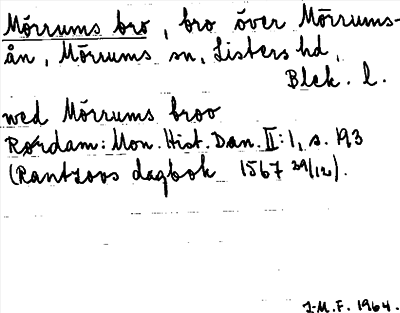 Mörrums bro, bro över Mörrums-
ån, Mörrums sn, Listers hd,
Blek. l.
wed Mörrums broo
Rørdam: Mon. Hist. Dan. II:1, s. 193
(Rantzovs dagbok 1567 29/12).
J-M.F. 1964.